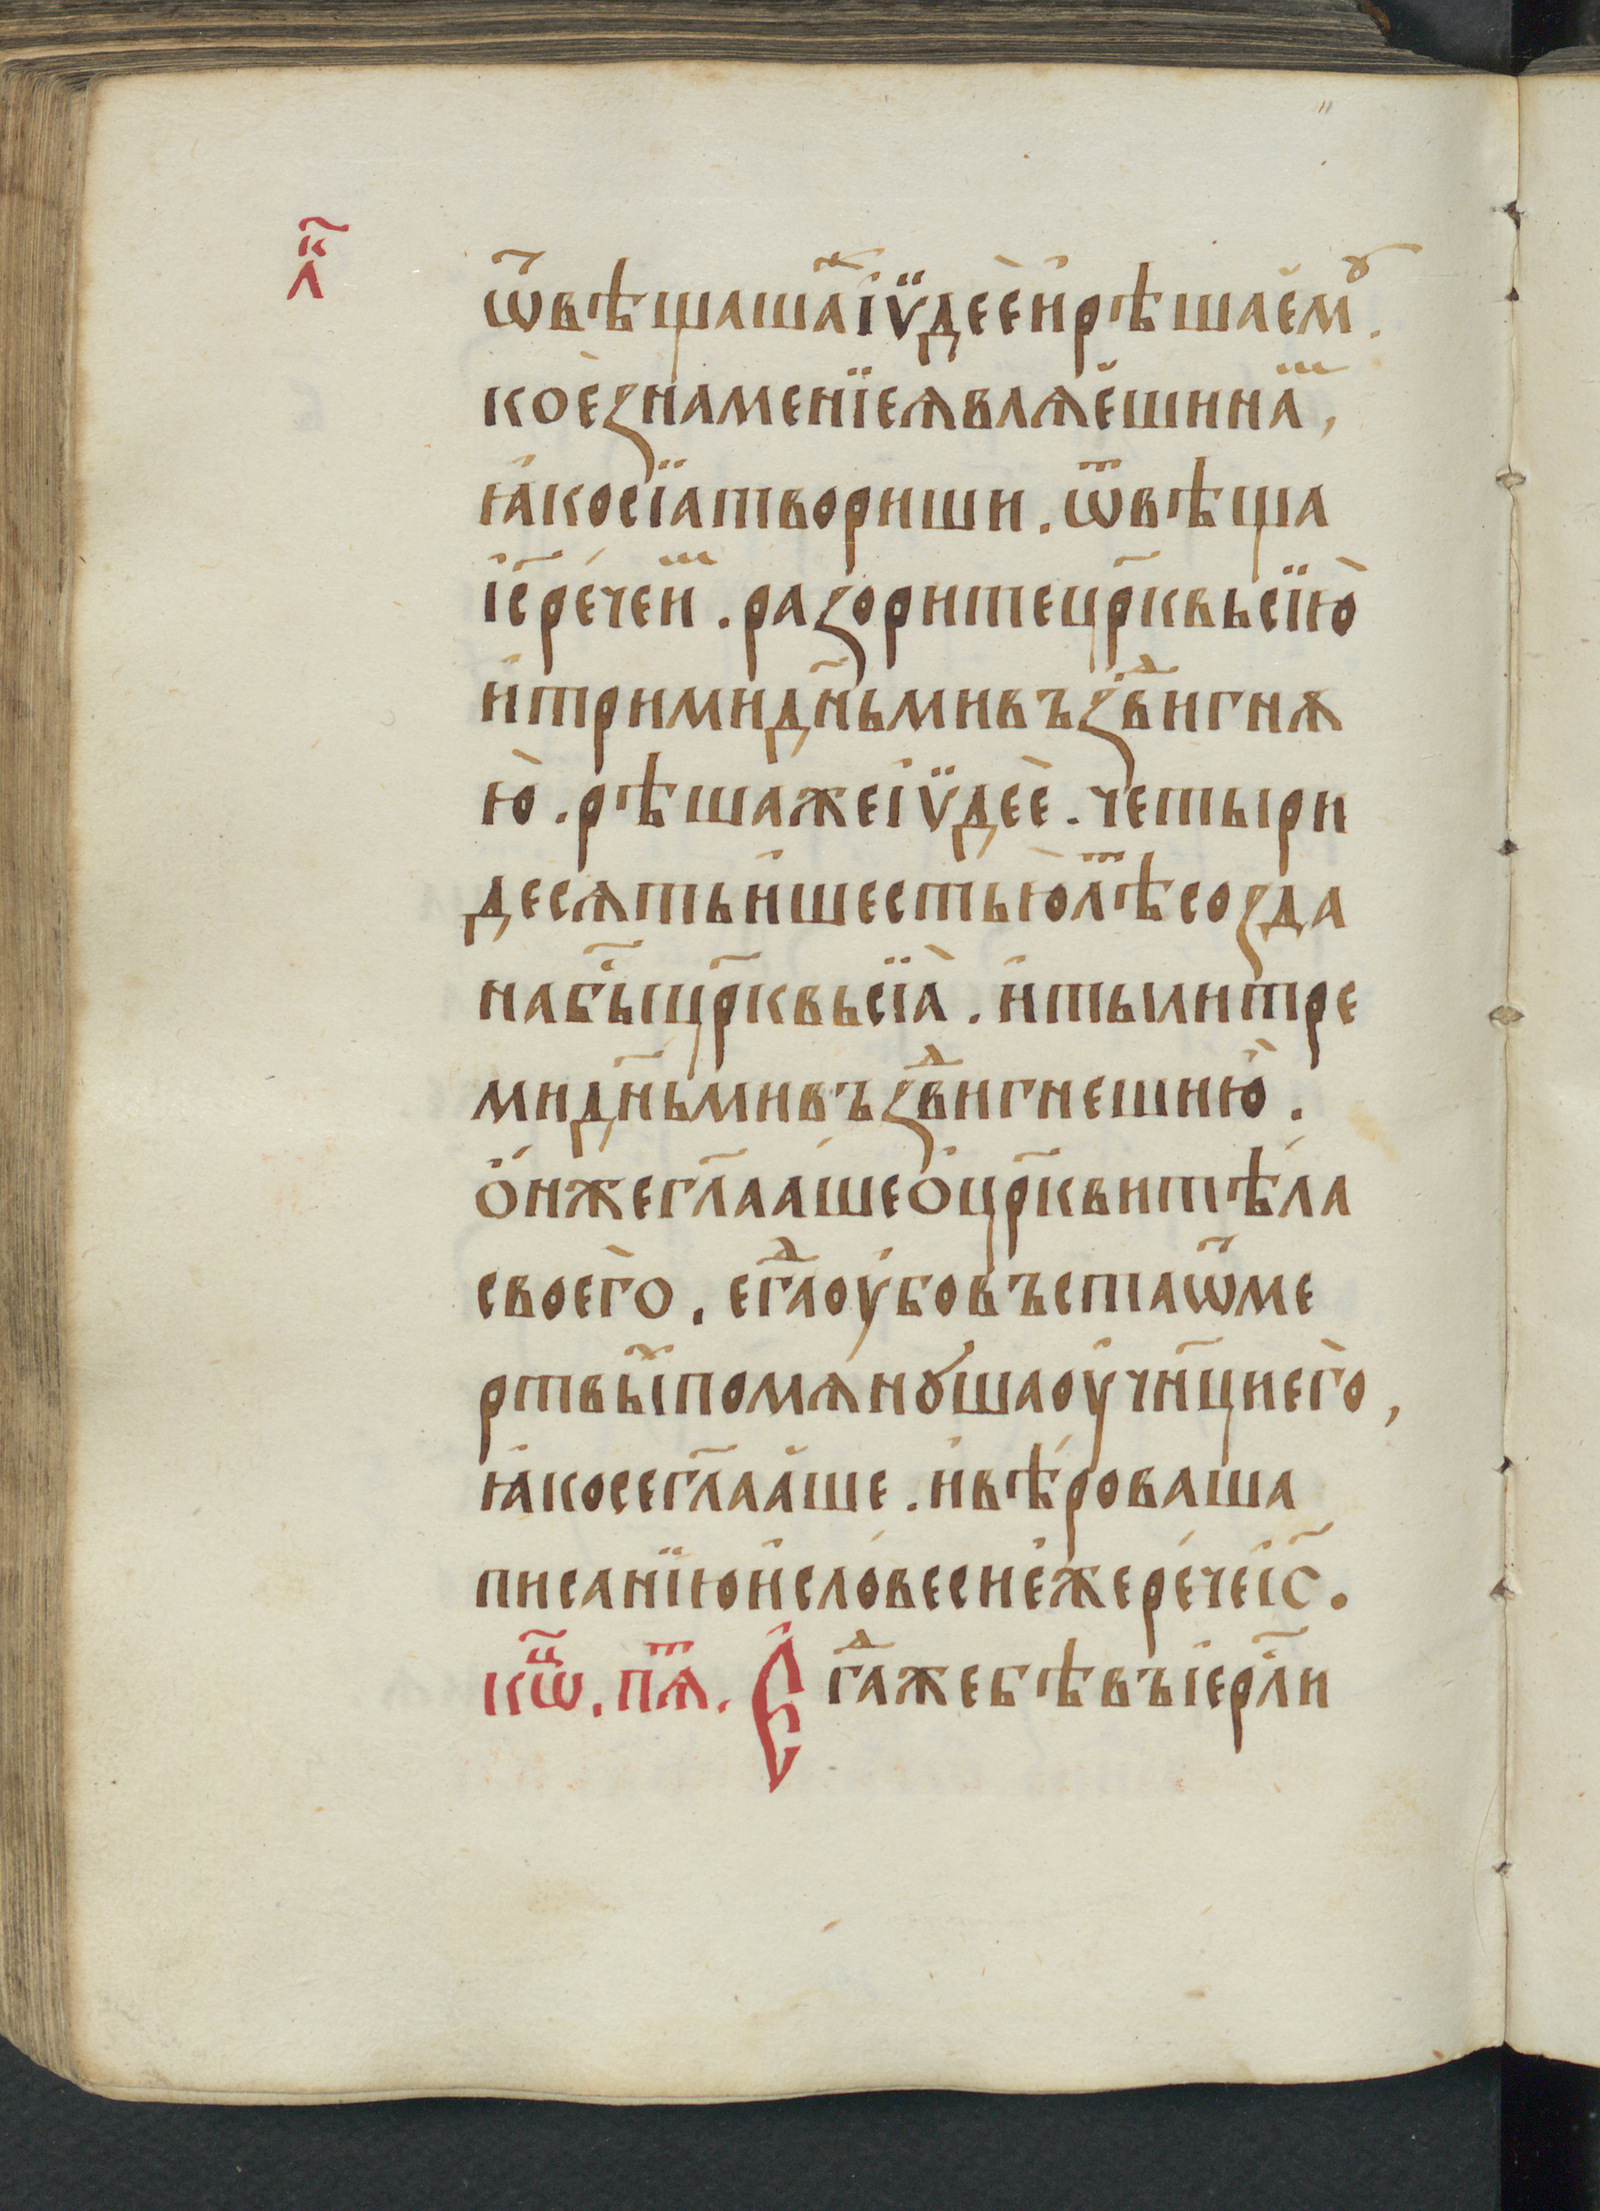 л҃к
ѿвѣщашаⷤ іѵ̈дѐе и҆ рѣша е҆мꙋ.
коѐ знаменїе ꙗвлѧ́еши наⷨ,
ꙗ҆́ко сїа твориши. ѿвⷮѣща
і҆с҃ рече́ иⷨ. разорите цр҃квь сїю̀
и҆ трими дн҃ьми въздⷡ҇игнѫ
ю҆̀. рѣша же іѵ̈дѐе. четыри
десѧть и҆ шесть ю҆ лⷮѣ созда
на бы҃ цр҃квь сїа̀. и҆ ты ли тре
ми дн҃ьми въздⷡ҇игнеши ю҆̀.
о҆́нже гл҃аа́ше о҆ цр҃кви тѣ́ла
своего̀. егⷣа оу҆бо въста ѿ ме
ртвыⷯ помѧнꙋша оу҆чн҃ци его̀,
ꙗ҆́ко се гл҃аа́ше. и҆ вѣ́роваша
писанїю и҆ словеси е҆́же рече́ і҆с҃.
кѡⷰ҇. пⷮѧ. Е҆гⷣа же бѣ въ іерⷭ҇л҃и